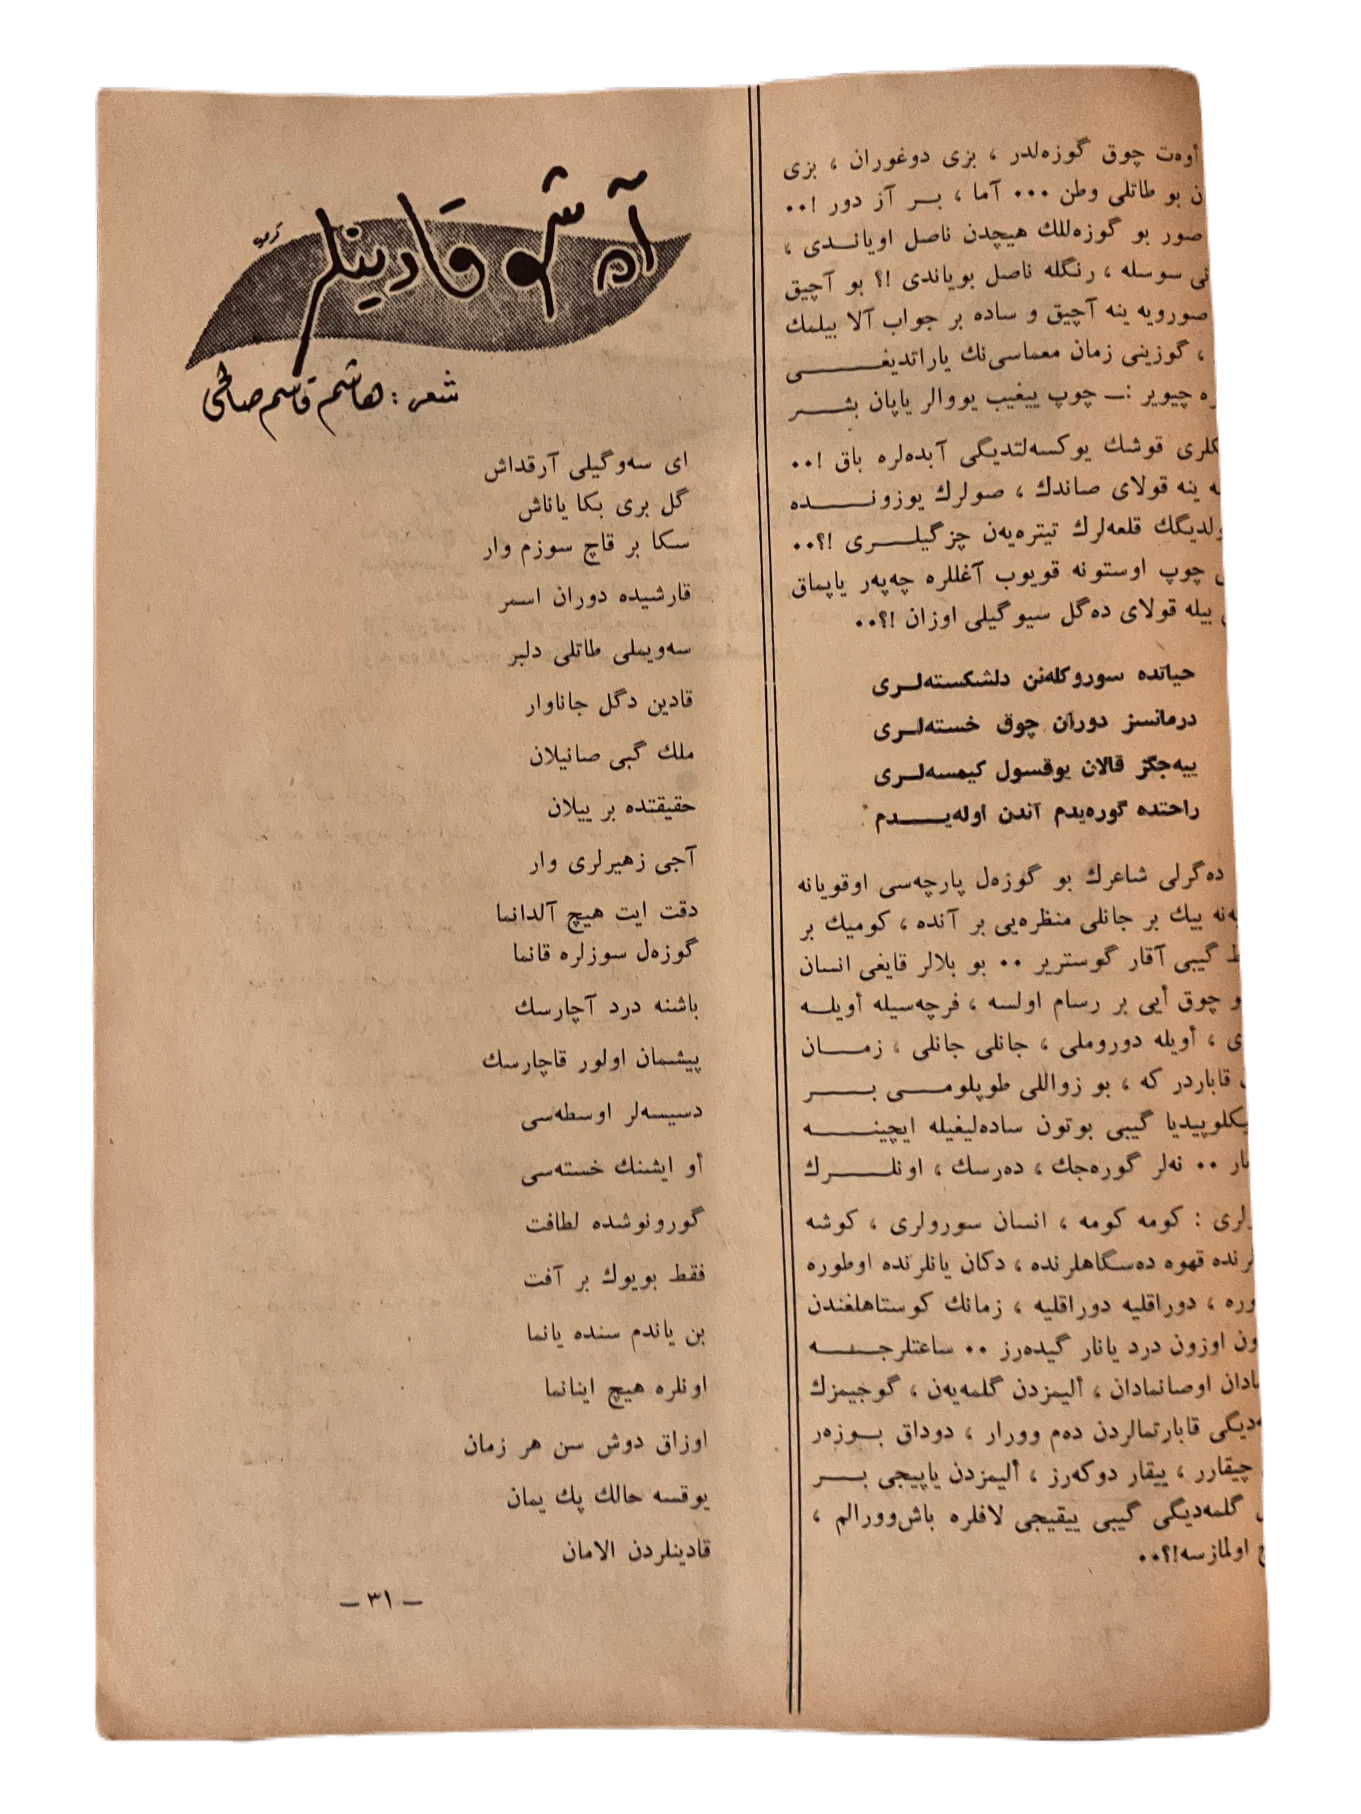 أوەت چوق گوزەلدر ، بزی دوغوران ، بزی
بو طاتلی وطن ۰۰۰ آما ، بـــر آز دور !۰۰
صور بو گوزەللك هیچدن ناصل اویاندی ،
سوسله ، رنگله ناصل بویاندی !؟ بو آچیق
صورویه ینه آچیق و ساده بر جواب آلا بیلمك
، گوزینی زمان معماسی‌نك یاراتدیغـــی
چیویر :ــ چوپ ییغیب یووالر یاپان بشـــر
قوشك یوكسه‌لتدیگی آبده‌لره باق !۰۰
ینه قولای صاندك ، صولرك یوزونـــده
قلعه‌لرك تیتره‌یه‌ن چزگیلـــری !؟۰۰
چوپ اوستونه قویوب آغللره چه‌په‌ر یاپماق
بیله قولای ده‌گل سیوگیلی اوزان !؟۰۰
حیاتده سوروكله‌نن دلشكسته‌لـــری
درمانسز دوران چوق خسته‌لـــری
ییه‌جگز قالان یوقسول كیمسه‌لـــری
راحتده گوره‌یدم آندن اوله‌یـــدم
ده‌گرلی شاعرك بو گوزه‌ل پارچه‌سی اوقویانه
بیك بر جانلی منظره‌یی بر آنده ، كومیك بر
گیبی آقار گوستریر ۰۰ بو بلالر قایغی انسان
چوق أیی بر رسام اولسه ، فرچه‌سیله أویلـــه
، أویله دوروملی ، جانلی جانلی ، زمـــان
قاباردر كه ، بو زواللی طوپلومـــی بـــر
گیبی بوتون ساده‌لیغیله ایچینـــه
۰۰ نه‌لر گوره‌جك ، ده‌رسك ، اونلـــرك
: كومه كومه ، انسان سورولری ، كوشه
قهوه ده‌سگاهلرنده ، دكان یانلرنده اوطوره
، دوراقلیه دوراقلیه ، زمانك كوستاهلغندن
اوزون درد یانار گیده‌رز ۰۰ ساعتلرجـــه
اوصانمادان ، أليمزدن گلمه‌یه‌ن ، گوجیمزك
قابارتمالردن ده‌م وورار ، دوداق بـــوزه‌ر
چیقارر ، ییقار دوكه‌رز ، أليمزدن یاپیجی بـــر
گلمه‌دیگی گیبی ییقیجی لافلره باش‌وورالم ،
اولمازسه!؟۰۰
آه شو قادینلر
شعر : هاشم قاسم صالحی
ای سه‌وگیلی آرقداش
گل بری بكا یاناش
سكا بر قاچ سوزم وار
قارشیده دوران اسمر
سه‌ویملی طاتلی دلبر
قادین دگل جاناوار
ملك گبی صانیلان
حقیقتده بر ییلان
آجی زهیرلری وار
دقت ایت هیچ آلدانما
گوزه‌ل سوزلره قانما
باشنه درد آچارسك
پیشمان اولور قاچارسك
دسیسه‌لر اوسطه‌سی
أو ایشنك خسته‌سی
گورونوشده لطافت
فقط بویوك بر آفت
بن یاندم سنده یانما
اونلره هیچ اینانما
اوزاق دوش سن هر زمان
یوقسه حالك پك یمان
قادینلردن الامان
– ٣١ –